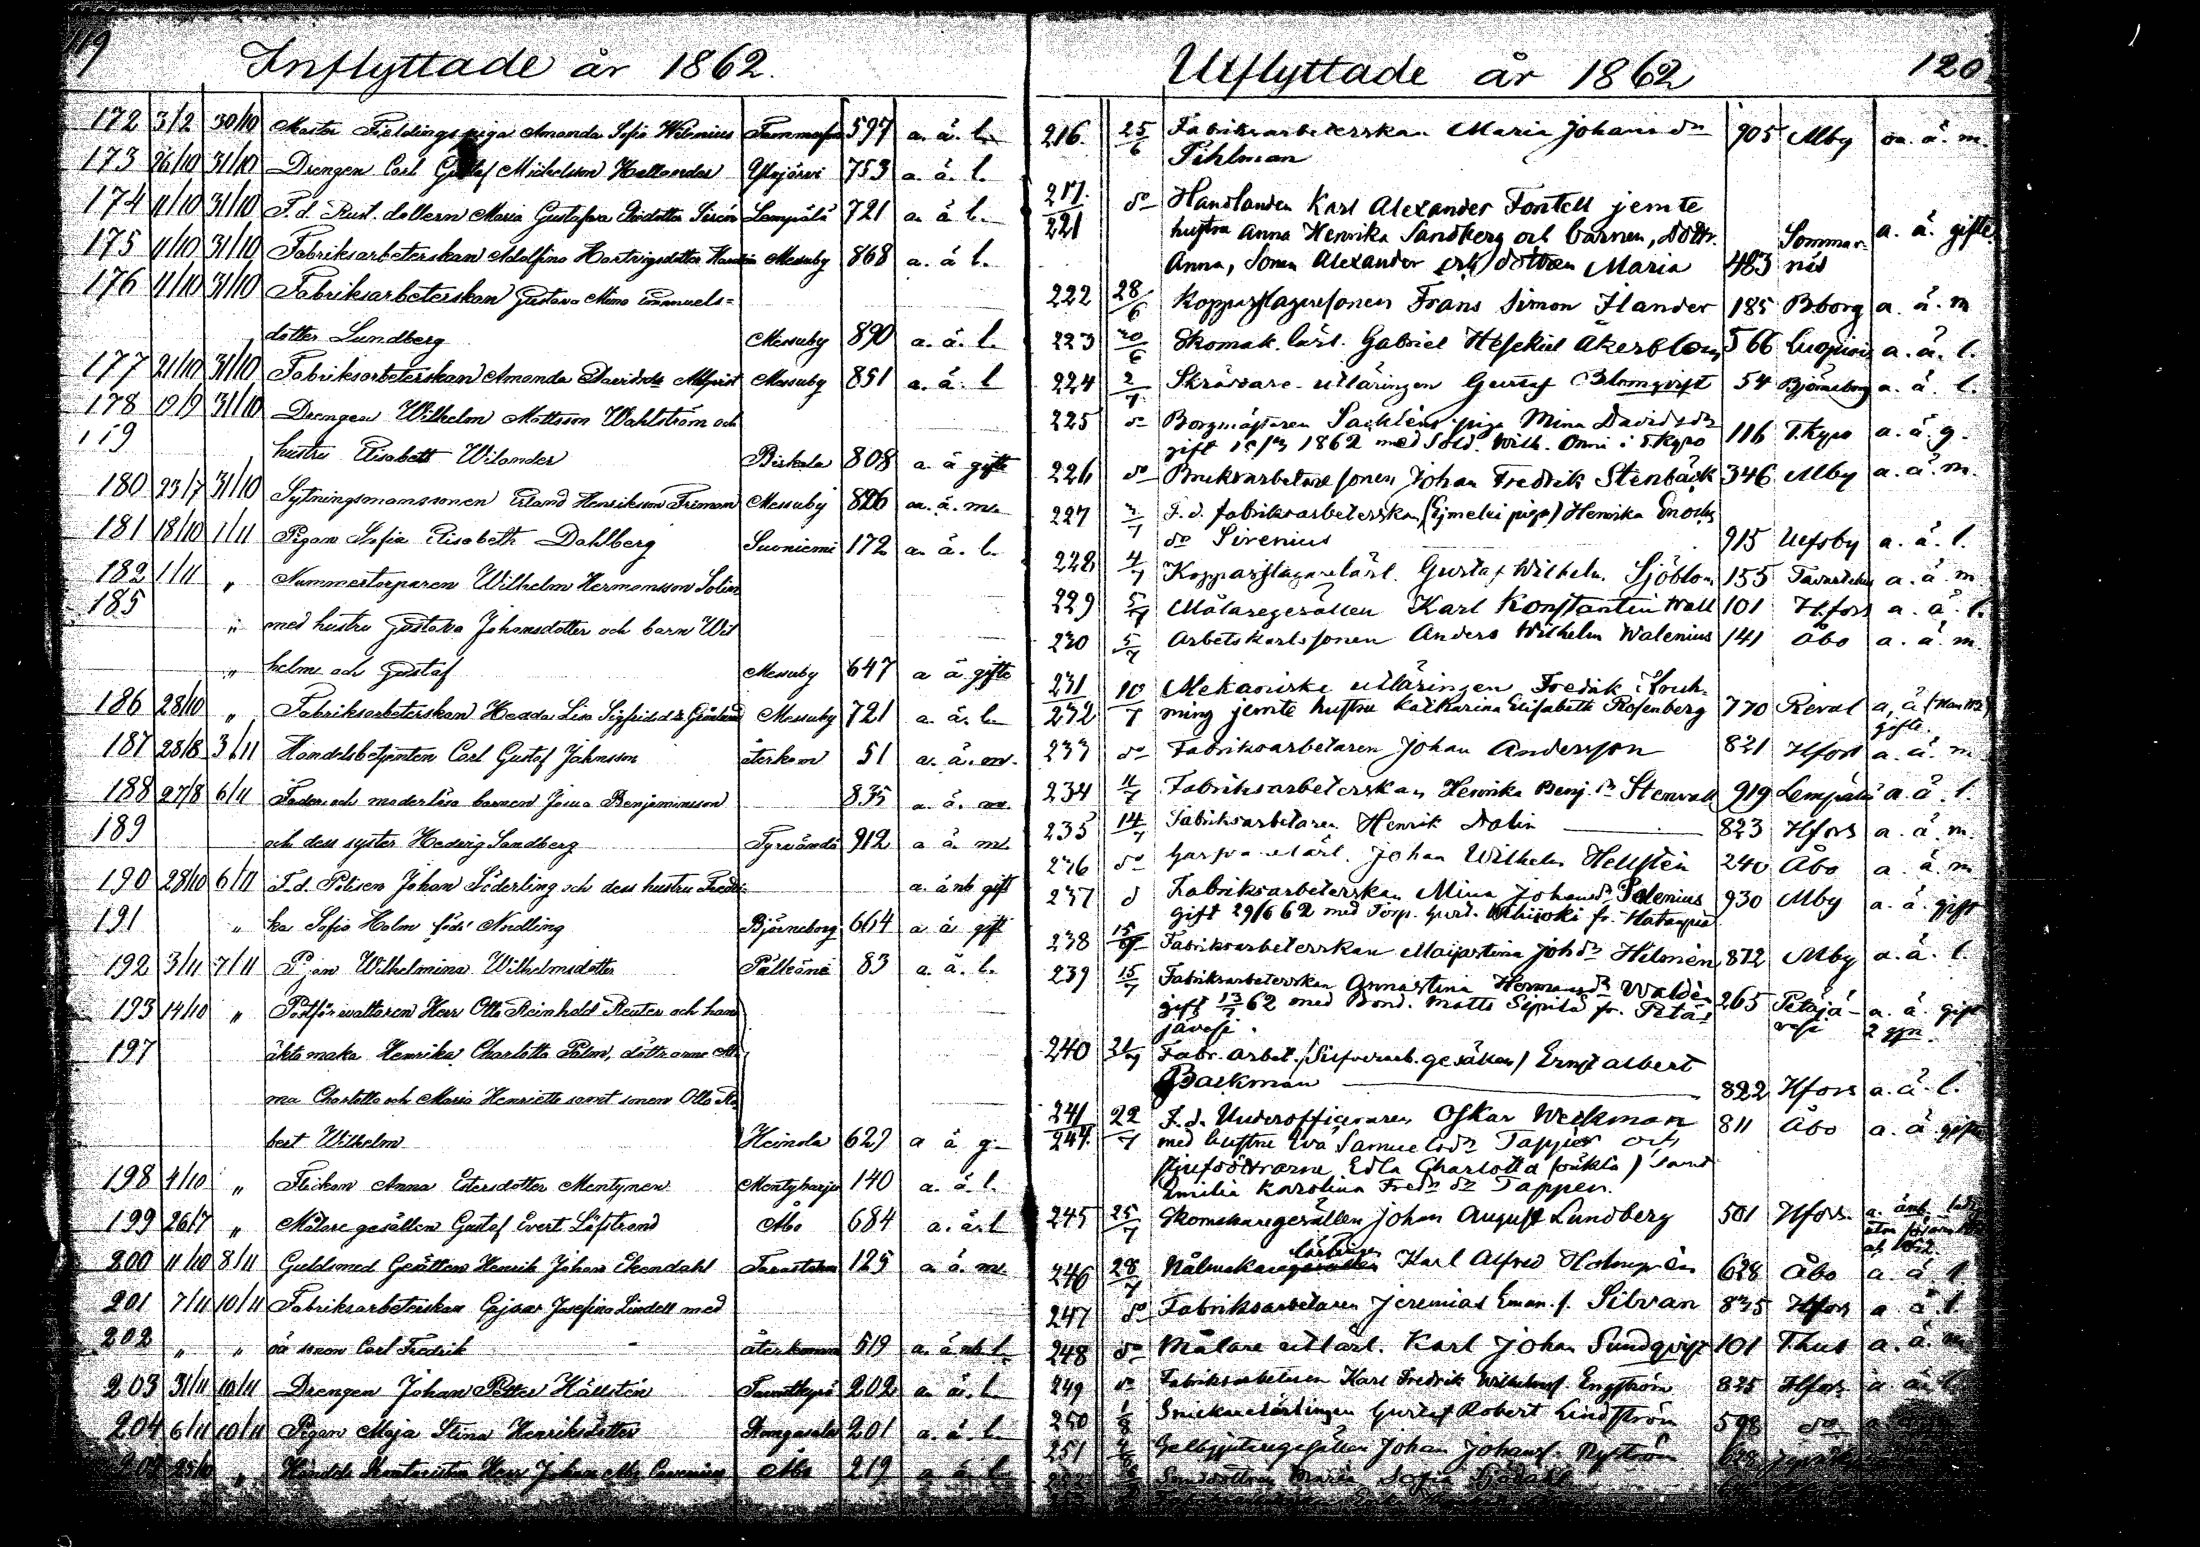 119
Inflyttade år 1862.
172 3/2 30/10 Master Fieldings piga Amanda Sofia Welenius 597 a. ä. l.
173 26/10 31/10 Drengen Carl Gustaf Michelsson Hellander Ylöjärvi 753 a. ä. l.
174 11/10 31/10 F. d. Rust. dottern Maria Gustafva Sirén Lempälä 721 a. ä. l.
175 11/10 31/10 Fabriksarbeterskan Adolfina Hartvigsdotter Messuby 868 a. ä. l.
176 11/10 31/10 Fabriksarbeterskan Gustava Mina Emanuels=
dotter Lundberg Messuby 890 a. ä. l.
177 21/10 31/10 Fabriksarbeterskan Amanda Davidsdr Messuby 851 a. ä. l
178 19/9 31/10 Drengen Wilhelm Mattsson Wahlström och
119 hustru Elisabett Wilander Birkala 808 a ä gifte
180 23/7 31/10 Sytningsmanssonen Erland Henriksson Messuby 826 a. ä. m.
181 18/10 1/11 Pigan Sofia Elisabeth Dahlberg Suoniemi 172 a. ä. l.
182 1/11 " Nummertorparen Wilhelm Hermansson
185 " med hustru Gustava Johansdotter och barn Wil
" helm och Gustaf Messuby 647 a ä gifte
186 28/10 " Fabriksarbeterskan Hedda Lisa Sigfridsdr Messuby 721 a. ä. l.
187 28/8 3/11 Handelsbetjenten Carl Gustaf Johnsson återkom 51 a. ä. m.
188 27/8 6/11 Fader och moderlösa barnen Benjaminsson 835 a. ä. m.
189 och dess syster Hedvig Sandberg Tyrvändö 912 a ä. m.
190 28/10 6/11 F. d. Polisen Johan Söderling och dess hustru Fredri a. ä nb gift
191 " ka Sofia Holm född Nordling Björneborg 664 a ä gift
192 3/11 7/11 Pigan Wilhelmina Wilhelmsdotter Pälkäne 83 a. ä. l.
193 14/10 " Postförvaltaren Herr Otto Reinhold Reuter och hans
197 äkta maka Henrika Charlotta Palm, döttrarne
ma Charlotta och Maria Henriette samt sonen Otto Ro
bert Wilhelm Heinola 629 a ä g
198 4/10 " Flickan Anna Estersdotter Mentynen Mentyharju 140 a. ä. l.
199 26/7 " Målare gesällen Gustaf Evert Löfstrand Åbo 684 a. ä. l
200 11/10 8/11 Guldsmed Gesällen Henrik Johan Ekendahl 125 a. ä. m.
201 7/11 10/11 Fabriksarbeterskan Cajsa Josefina Lindell med
202 " " oä sonen Carl Fredrik återkomna 519 a. ä nb l
203 31/11 10/11 Drengen Johan Petter Hällsten 202 a. ä. l.
204 6/11 10/11 Pigan Maja Stina Henriksdotter Kangasala 201 a. ä. l.
25/10 " Herr Johan Åbo 219 a. ä. l
120
Utflyttade år 1862
216. 25/6 Fabriksarbeterskan Maria Johansdr 905 Mby a. ä. m.
Pihlman
217. do Handlanden Karl Alexander Fontell jemte
221 hustru Anna Henrika Sandberg och barnen, Dottr. Sommar- a. ä. gifte
Anna, Sonen Alexander och dottren Maria 483 näs
222 28/6 Kopparslagaresonen Frans Simon Ilander 185 Bborg a. ä. m
223 30/6 Skomak. lärl. Gabriel Hesekiel Åkerblom 566 Luopiois a. ä. l.
224 2/7 Skräddare-utläringen Gustaf Blomqvist 54 Björneborg a. ä. l.
225 do Borgmästaren piga Mina Davidsdr
gift 1862 med Sold. Wilh. Onni i Tkyro 116 T.kyro a. ä. g.
226 do Bruksarbetaresonen Johan Fredrik Stenbäck 346 Mby a. ä. m.
227 3/7 F. d. fabriksarbeterskan (Ejmelei piga) Henrika Enochs
dr Sirenius 915 Ulfsby a. ä. l.
228 4/7 Kopparslagarelärl. Gustaf Wilhelm Sjöblom 155 Tavastehus a. ä. m
229 5/7 Målaregesällen Karl Konstantin Wall 101 Hfors a. ä. l.
230 5/7 Arbetskarlssonen Anders Wilhelm Walenius 141 Åbo a. ä. m.
231 10/7 Mekaniske utläringen Fredrik
232 ming jemte hustru Katharina Elisabeth Rosenberg 770 Reval a. ä gifte.
233 do Fabriksarbetaren Johan Andersson 821 Hfors a. ä. m
234 11/7 Fabriksarbeterskan Henrika Benj. dr Stenvall 919 Lempälä a. ä. l.
235 14/7 Fabriksarbetaren Henrik Dalin 823 Hfors a. ä. m.
236 do Garfvarelärl. Johan Wilhelm Hellstén 240 Åbo a. ä. m
237 d Fabriksarbeterskan Mina Johansdr Selenius 930 Mby a. ä. gift
gift 29/6 62 med Torp. Gust. fr. Hatanpää
238 15/7 Fabriksarbeterskan Majastina Johdr Helmén 872 Mby a. ä. l.
239 15/7 Fabriksarbeterskan Annastina Hermansdr Waldén
gift 13/7 62 med Bond. Matts Sipilä fr. Petä- 265 Petäjä- a. ä. gift
jävesi. vesi 2 ggn
240 21/7 Fabr. arbet. (Silfverarb. gesällen) Ernst Albert
Backman 822 Hfors a. ä. l.
241 22/7 F. d. Underofficeraren Oskar Weckman 811 Åbo a. ä gifte
244. med hustru Eva Samuelsdr Tapper och
styfdöttrarne Edla Charlotta (oäkta) samt
Emilia Karolina Fredr dr Tapper.
245 25/7 Skomakaregesällen Johan August Lundberg 501 Hfors.
246 28/7 Nålmakare lärlingen Karl Alfred Holmprén 628 Åbo a. ä. l.
247 do Fabriksarbetaren Jeremias Eman. s. Silvan 835 Hfors a. ä. l.
248 do Målare utlärl. Karl Johan Sundqvist 101 T.hus a. ä. m
249 do Fabriksarbetaren Karl Fredrik Wilhelmss. Engström 825 Hfors a. ä. l.
250 1/8 Snickarelärlingen Gustaf Robert Lindström 598 do a
251 Gelbgjutaregesällen Johan Johanss. Nyström 628
Maria Sofia